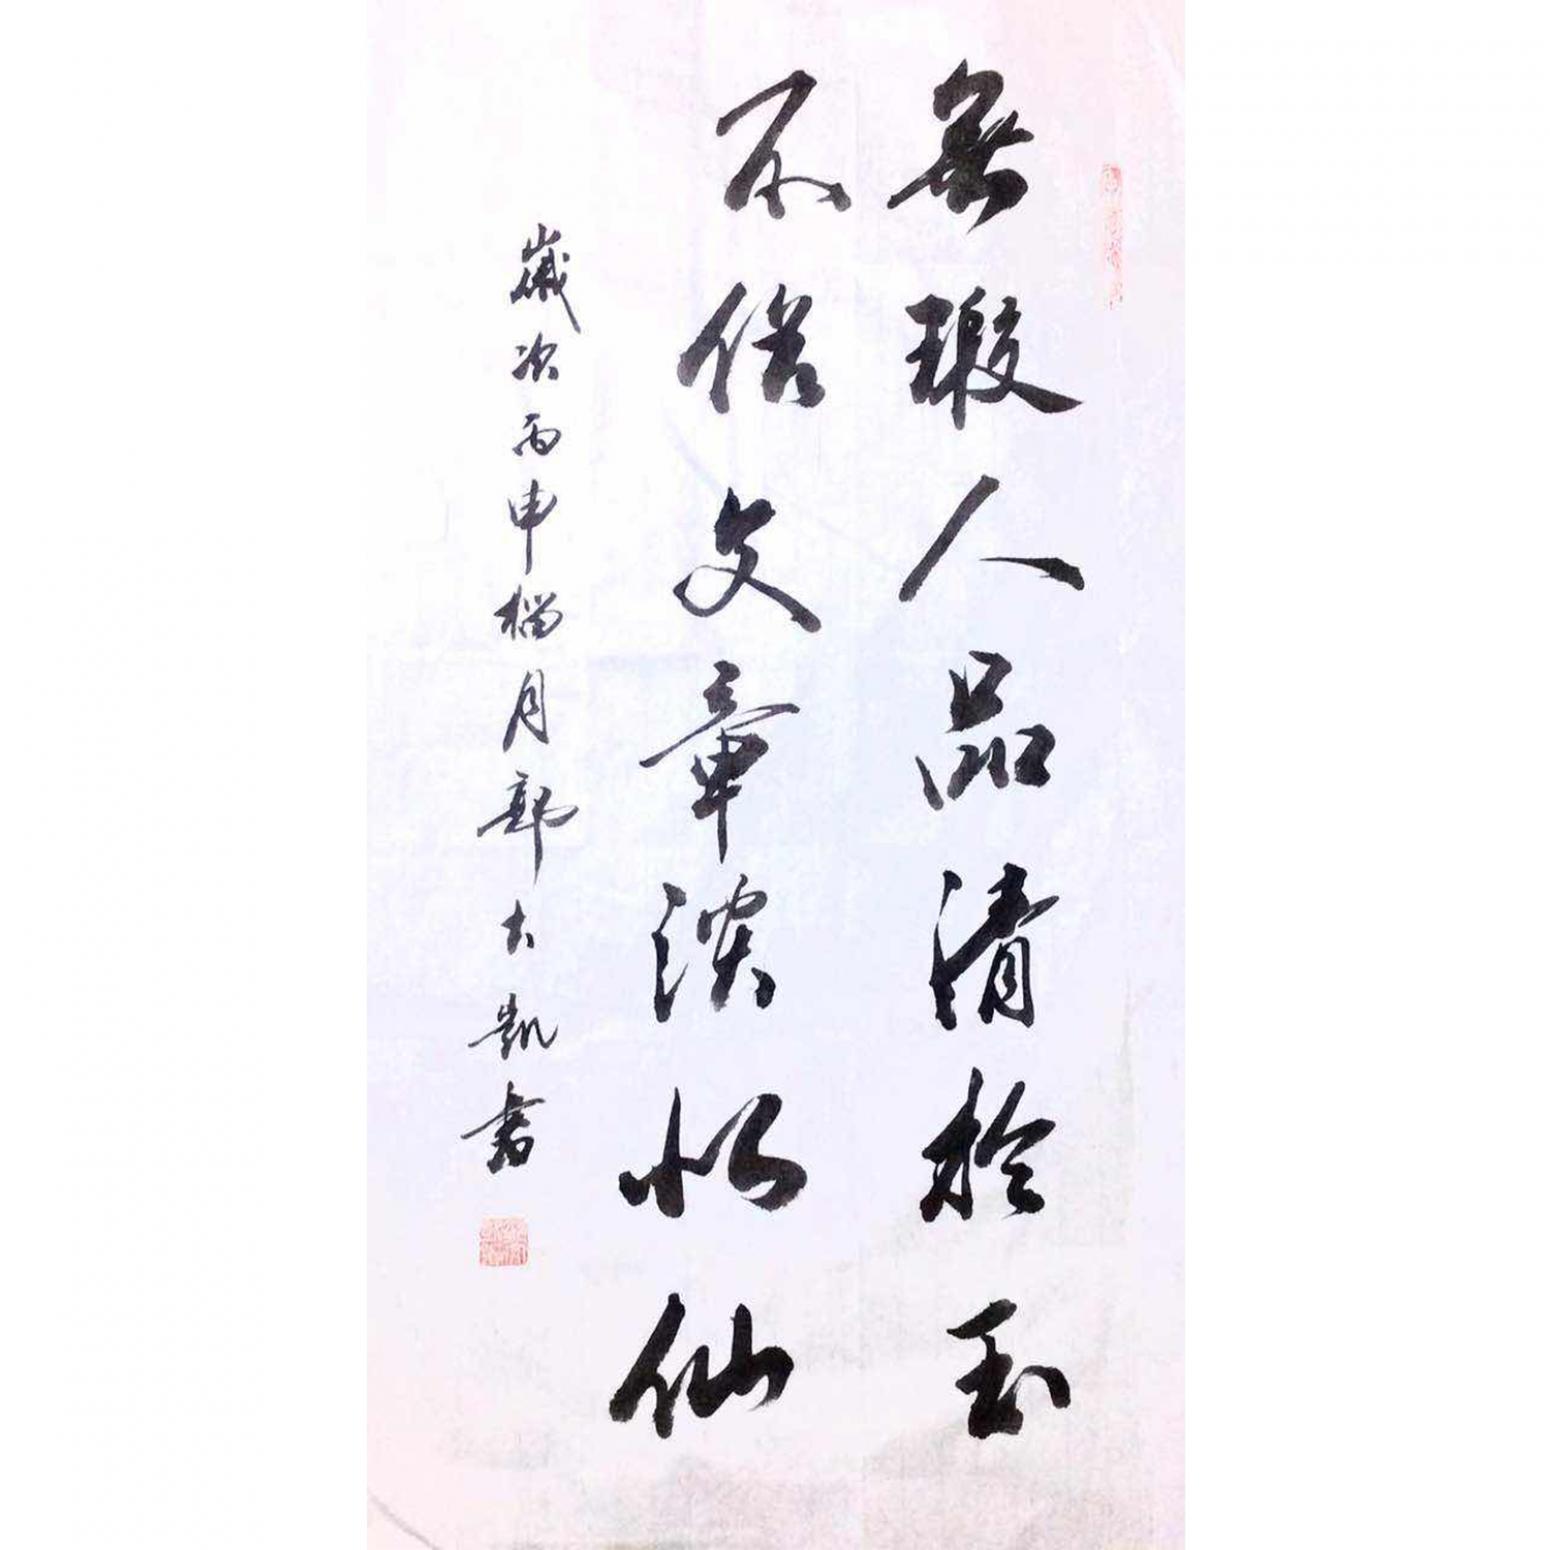 無瑕人品清於玉
不俗文章淡似仙
歲次丙申榴月郭大凱書